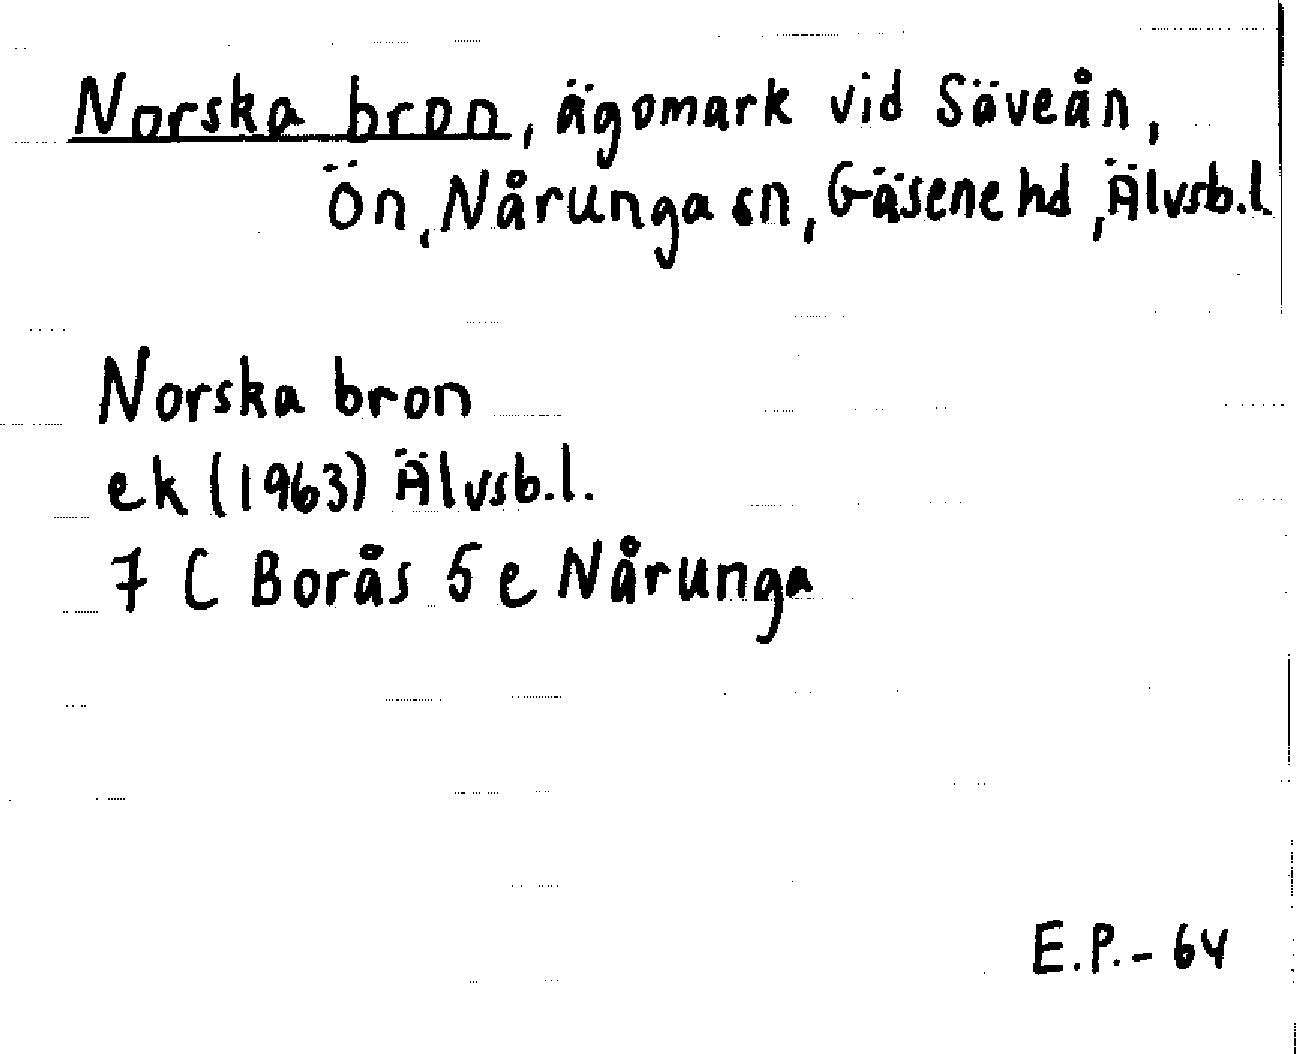 Norska bron, ägomark vid Säveån,
Ön, Nårunga sn, Gäsene hd, Älvsb.l
Norska bron
ek (1963) Älvsb.l.
7 C Borås 5 e Nårunga
E.P.-64